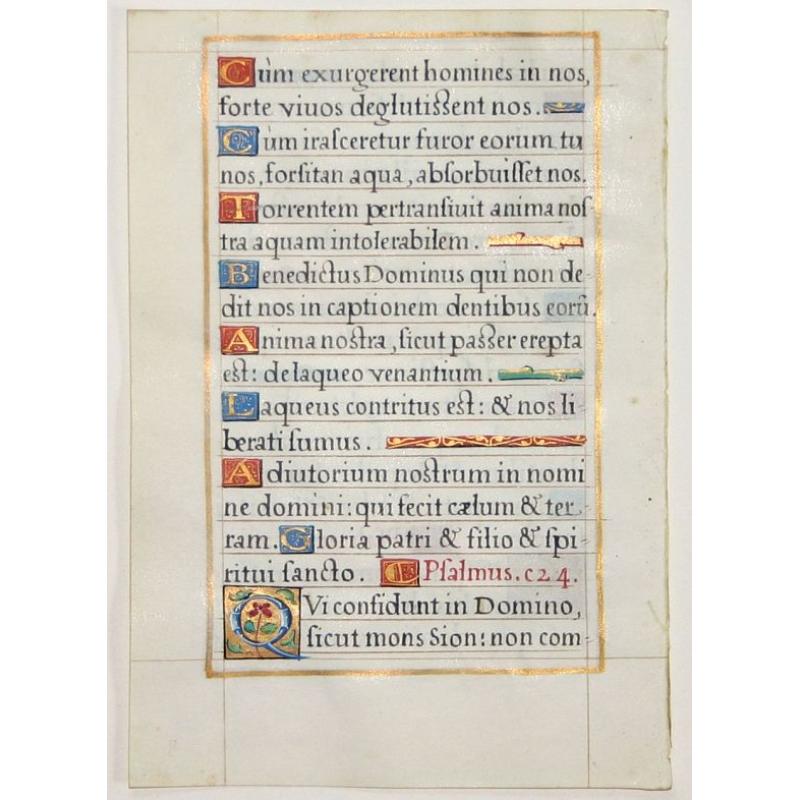 Cùm exurgerent homines in nos,
forte viuos deglutissent nos.
Cùm irasceretur furor eorum in
nos, forsitan aqua, absorbuisset nos.
Torrentem pertransiuit anima nos
tra aquam intolerabilem.
Benedictus Dominus qui non de-
dit nos in captionem dentibus eorū.
Anima nostra, sicut passer erepta
est: de laqueo venantium.
Laqueus contritus est: & nos li-
berati sumus.
Adiutorium nostrum in nomi
ne domini: qui fecit cælum & ter-
ram. Gloria patri & filio & spi-
ritui sancto. Psalmus. c24.
QVi confidunt in Domino,
sicut mons Sion: non com-